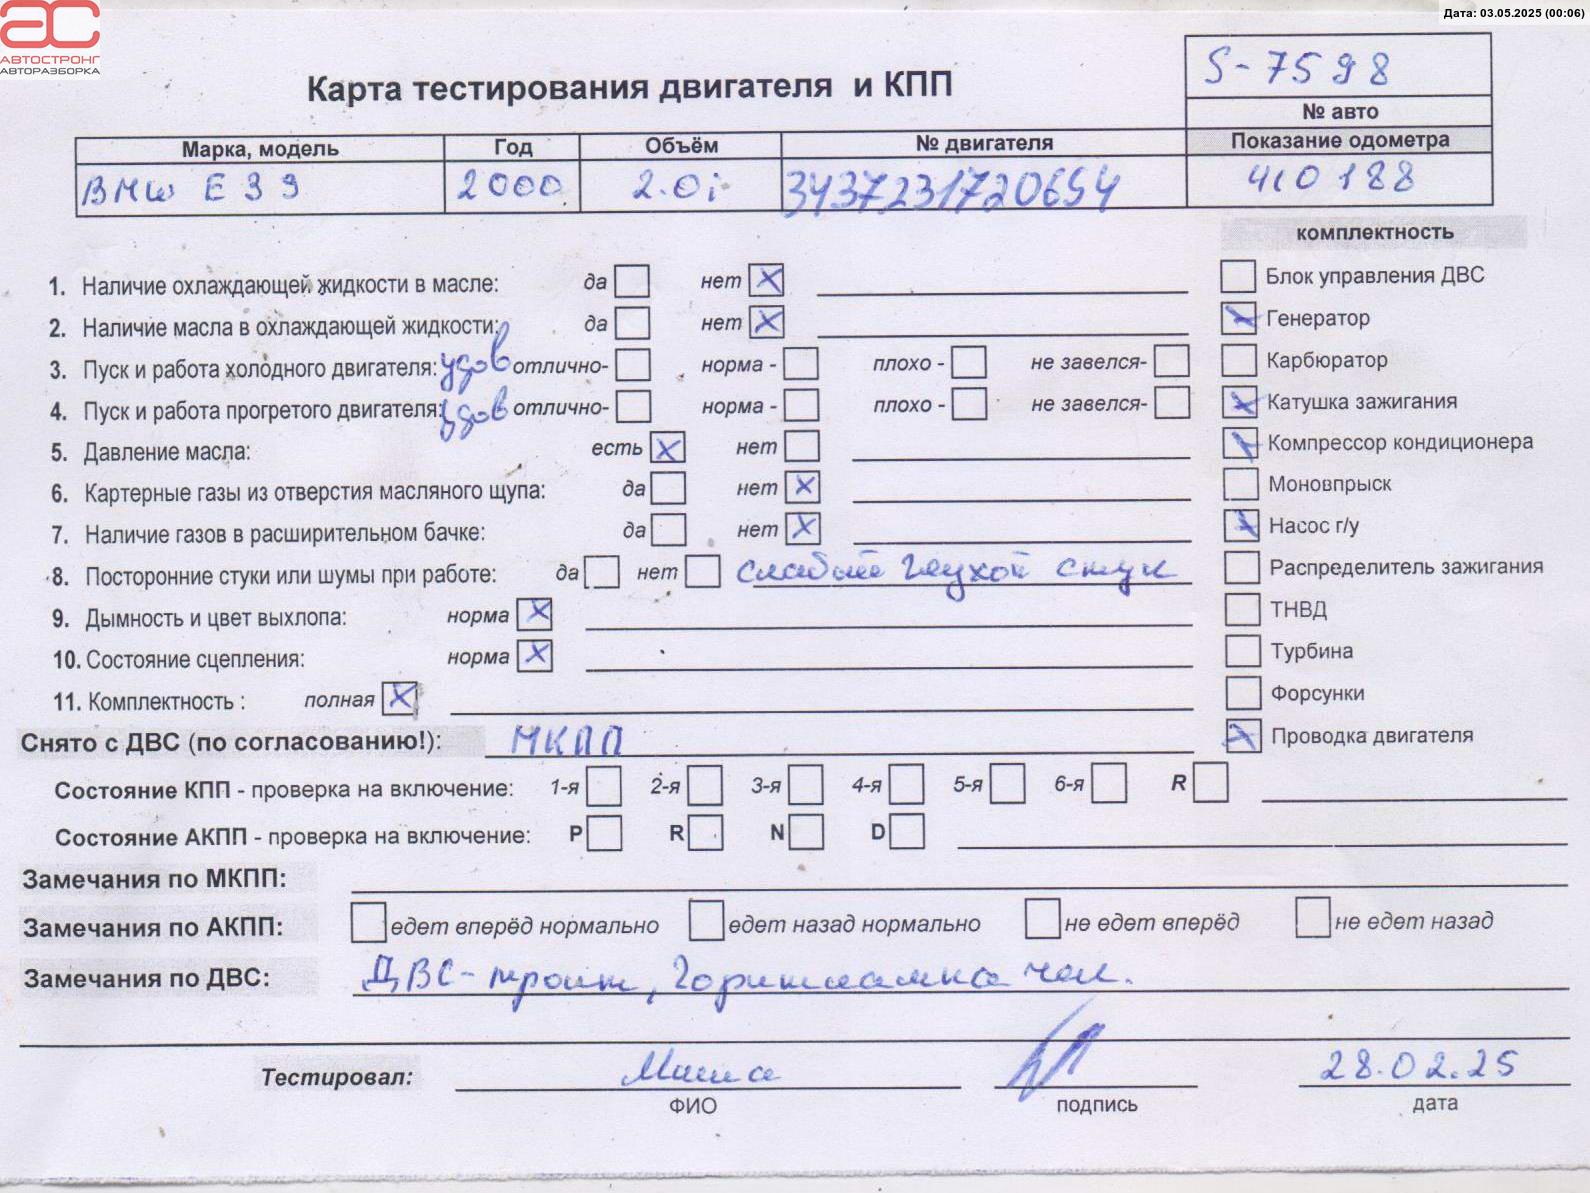 Дата: 03.05.2025 (00:06)
АВТОСТРОНГ
АВТОРАЗБОРКА
Карта тестирования двигателя и КПП
S-7598
№ авто
Марка, модель Год Объём № двигателя Показание одометра
BMW E39 2000 2.0i 3437231720654 410188
комплектность
1. Наличие охлаждающей жидкости в масле: да нет X
Блок управления ДВС
2. Наличие масла в охлаждающей жидкости: да нет X
X Генератор
3. Пуск и работа холодного двигателя: удов отлично- норма - плохо - не завелся-
Карбюратор
4. Пуск и работа прогретого двигателя: удов отлично- норма - плохо - не завелся-
X Катушка зажигания
5. Давление масла: есть X нет
X Компрессор кондиционера
6. Картерные газы из отверстия масляного щупа: да нет X
Моновпрыск
7. Наличие газов в расширительном бачке: да нет X
X Насос г/у
8. Посторонние стуки или шумы при работе: да нет слабый глухой стук
Распределитель зажигания
9. Дымность и цвет выхлопа: норма X
ТНВД
10. Состояние сцепления: норма X
Турбина
11. Комплектность : полная X
Форсунки
Снято с ДВС (по согласованию!): МКПП
X Проводка двигателя
Состояние КПП - проверка на включение: 1-я 2-я 3-я 4-я 5-я 6-я R
Состояние АКПП - проверка на включение: P R N D
Замечания по МКПП:
Замечания по АКПП: едет вперёд нормально едет назад нормально не едет вперёд не едет назад
Замечания по ДВС: ДВС - троит, Горит лампа чек.
Тестировал:
28.02.25
ФИО подпись дата